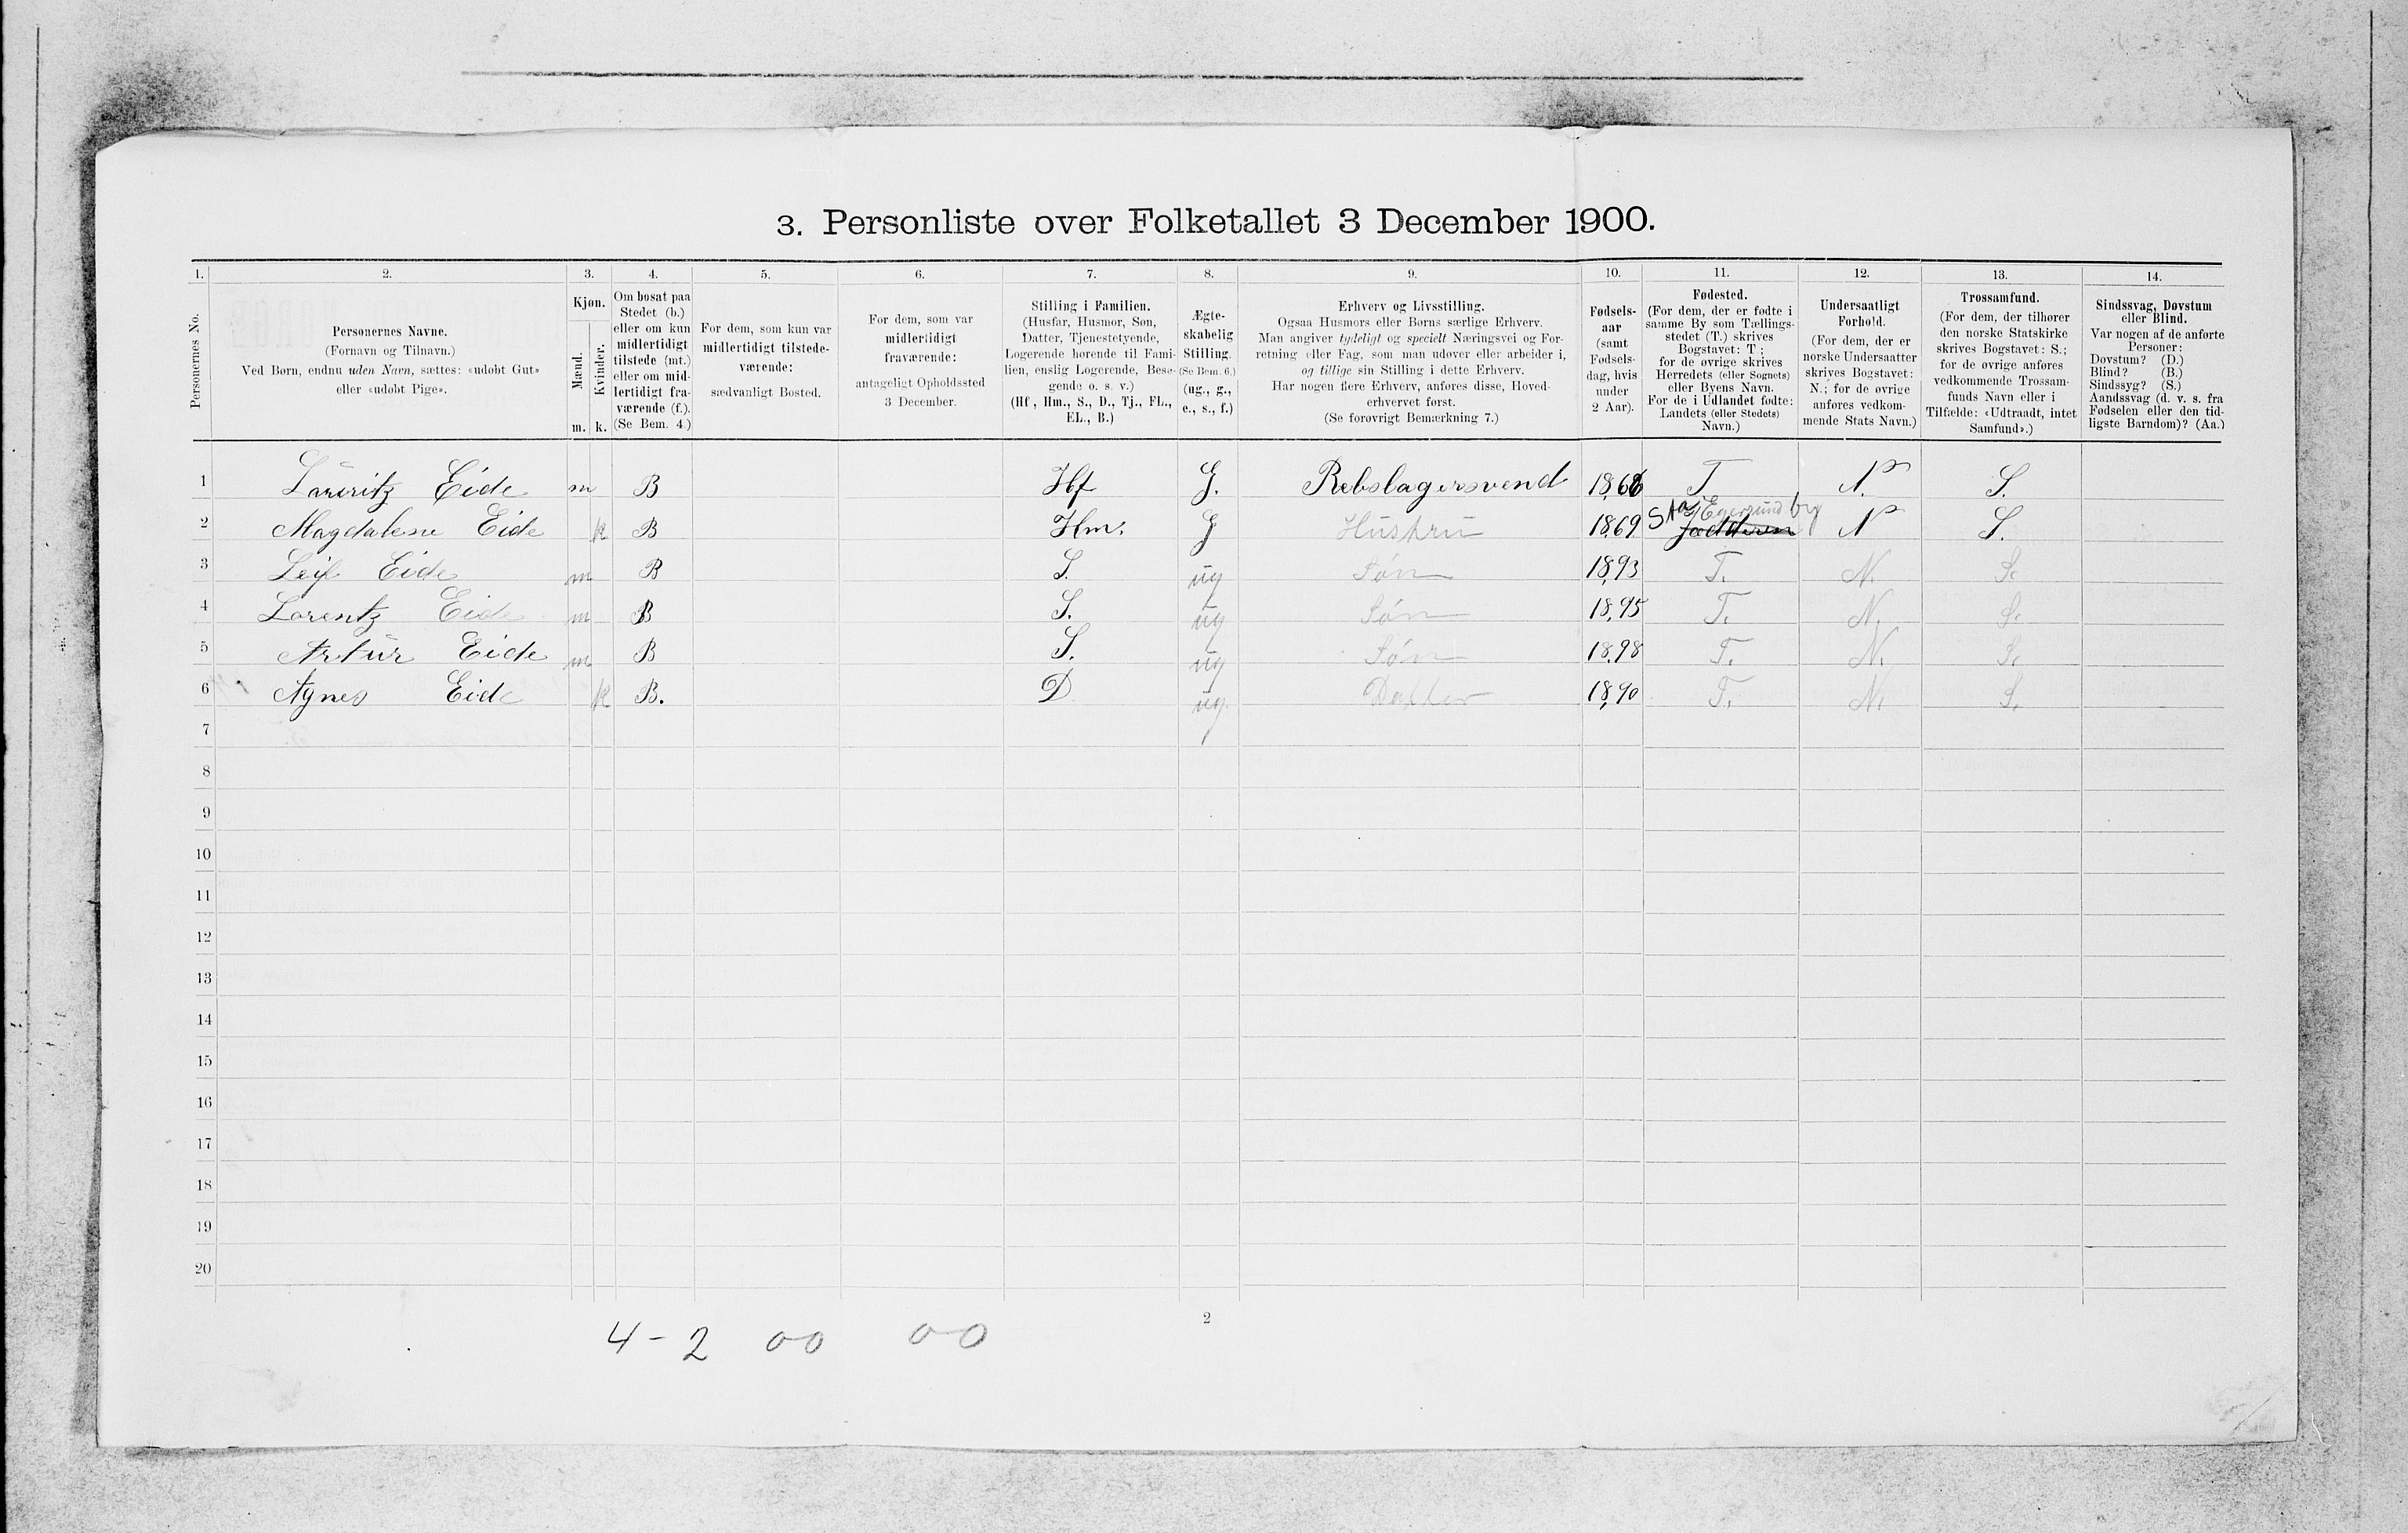 3. Personliste over Folketallet 3 December 1900.
1. 2. 3. 4. 5. 6. 7. 8. 9. 10. 11. 12. 13. 14.
Personernes No.
Personernes Navne.
(Fornavn og Tilnavn.)
Ved Børn, endnu uden Navn, sættes: «udøbt Gut»
eller «udøbt Pige».
Kjøn.
Mænd.
Kvinder.
m. k.
Om bosat paa
Stedet (b.)
eller om kun
midlertidigt
tilstede (mt.)
eller om mid-
lertidigt fra-
værende (f.).
(Se Bem. 4.)
For dem, som kun var
midlertidigt tilstede-
værende:
sædvanligt Bosted.
For dem, som var
midlertidigt
fraværende:
antageligt Opholdssted
3 December.
Stilling i Familien.
(Husfar, Husmor, Søn,
Datter, Tjenestetyende,
Logerende hørende til Fami-
lien, enslig Logerende, Besø-
gende o. s. v.)
(Hf, Hm., S., D., Tj., FL.,
EL., B.)
Ægte-
skabelig
Stilling.
(Se Bem. 6.)
(ug., g.,
e., s., f.)
Erhverv og Livsstilling.
Ogsaa Husmors eller Børns særlige Erhverv.
Man angiver tydeligt og specielt Næringsvei og For-
retning eller Fag, som man udøver eller arbeider i,
og tillige sin Stilling i dette Erhverv.
Har nogen flere Erhverv, anføres disse, Hoved-
erhvervet først.
(Se forøvrigt Bemærkning 7.)
Fødsels-
aar
(samt
Fødsels-
dag, hvis
under
2 Aar).
Fødested.
(For dem, der er fødte i
samme By som Tællings-
stedet (T.) skrives
Bogstavet: T ;
for de øvrige skrives
Herredets (eller Sognets)
eller Byens Navn.
For de i Udlandet fødte:
Landets (eller Stedets)
Navn.)
Undersaatligt
Forhold.
(For dem, der er
norske Undersaatter
skrives Bogstavet:
N.; for de øvrige
anføres vedkom-
mende Stats Navn.)
Trossamfund.
(For dem, der tilhører
den norske Statskirke
skrives Bogstavet: S.;
for de øvrige anføres
vedkommende Trossam-
funds Navn eller i
Tilfælde: «Udtraadt, intet
Samfund».)
Sindssvag, Døvstum
eller Blind.
Var nogen af de anførte
Personer:
Døvstum? (D.)
Blind? (B.)
Sindssyg? (S.)
Aandssvag (d. v. s. fra
Fødselen eller den tid-
ligste Barndom)? (Aa.)
1 Lauritz Eide m B Hf G. Rebslagersvend 1866 T N. S.
2 Magdalene Eide k B Hm. G Hustru 1869 Egersund by Jædderen N S.
3 Leif Eide m B S. ug Søn 1893 T. N. S.
4 Lorentz Eide m B S. ug Søn 1895 T. N. S.
5 Artur Eide m B S. ug Søn 1898 T. N. S.
6 Agnes Eide k B. D ug Datter 1890 T. N. S.
7
8
9
10
11
12
13
14
15
16
17
18
19
20
2
4 - 2 00 00